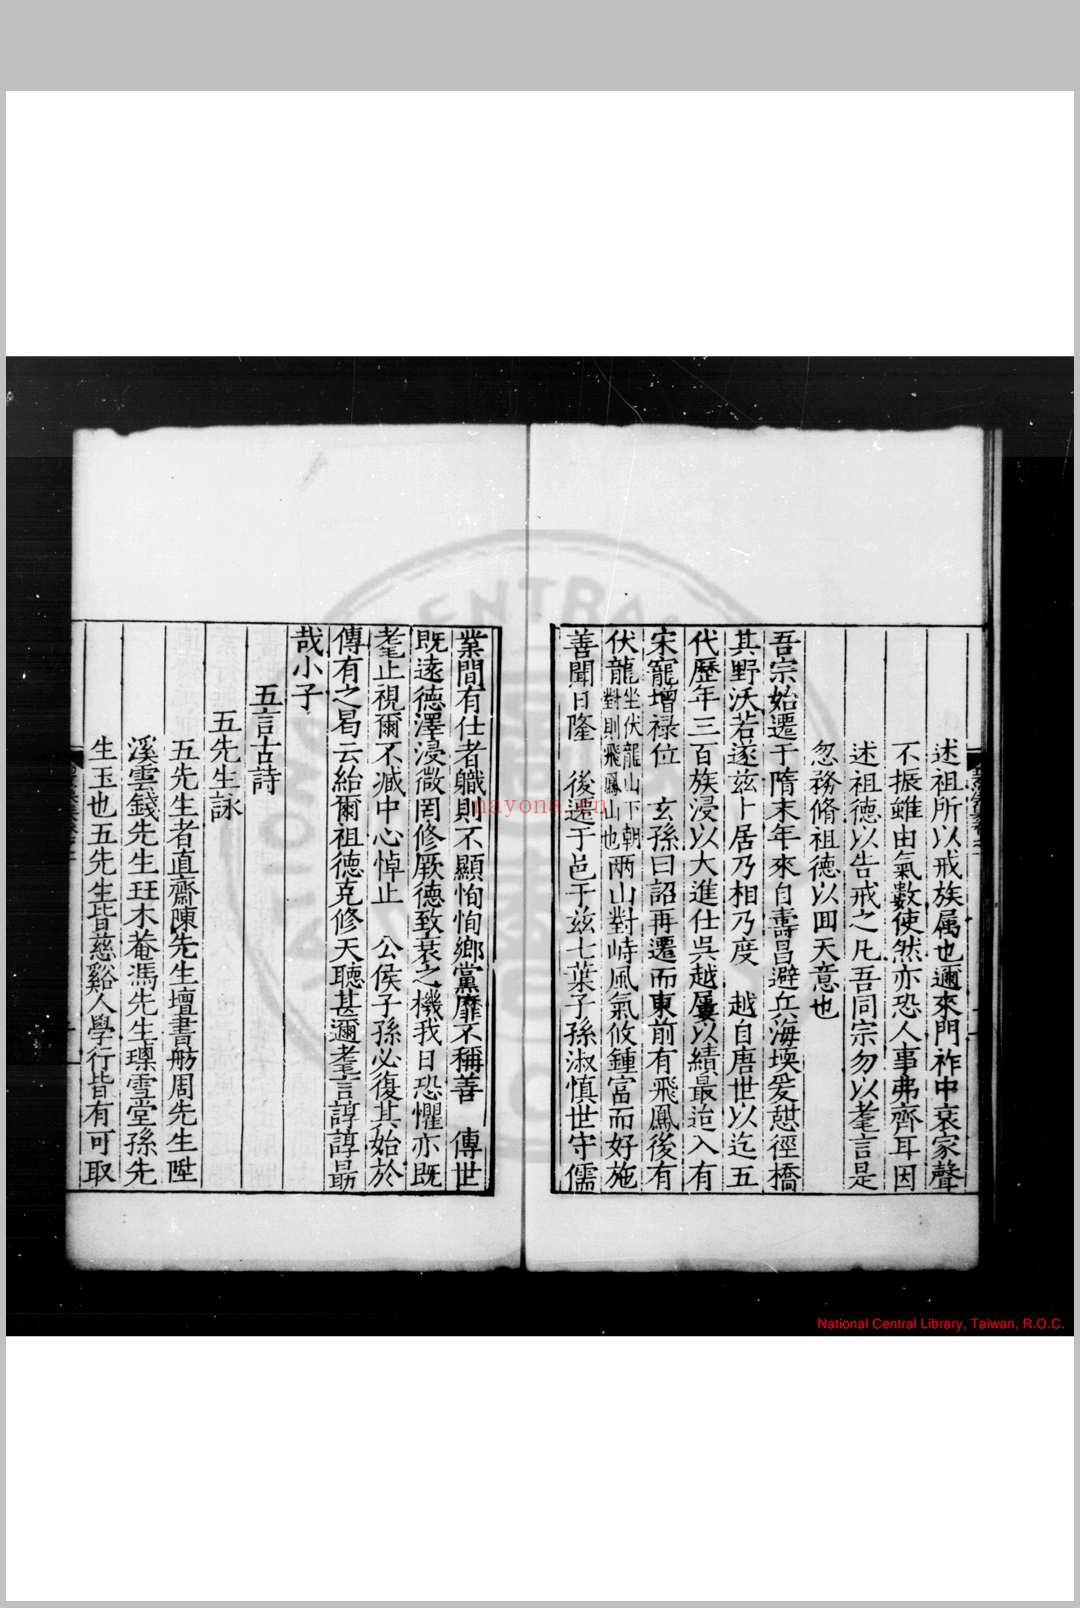 述祖所以戒族属也邇來門祚中衰家聲
不振雖由氣數使然亦恐人事弗齊耳因
述祖德以告戒之凡吾同宗勿以耄言是
忽務脩祖德以囬天意也
吾宗始遷于隋末年來自壽昌避兵海堧爰憇徑橋
其野沃若遂玆卜居乃相乃度 越自唐世以迄五
代歷年三百族浸以大進仕吳越屢以績最迨入有
宋寵增祿位 玄孫曰詔再遷而東前有飛鳳後有
伏龍坐伏龍山下朝對則飛鳳山也兩山對峙風氣攸鍾富而好施
善聞日隆 後遷于邑于玆七葉子孫淑慎世守儒
業間有仕者軄則不顯恂恂鄉黨靡不稱善 傳世
既遠德澤浸㣲罔修厥德致衰之機我日恐懼亦既
耄止視爾不臧中心悼止 公侯子孫必復其始於
傳有之曷云紿爾祖德克修天聽甚邇耄言諄諄朂
哉小子
五言古詩
五先生詠
五先生者直齋陳先生壇書舫周先生陞
溪雲錢先生玨木菴馮先生璪雪堂孫先
生玉也五先生皆慈谿人學行皆有可取
nayona.cn
National Central Library, Taiwan, R.O.C.